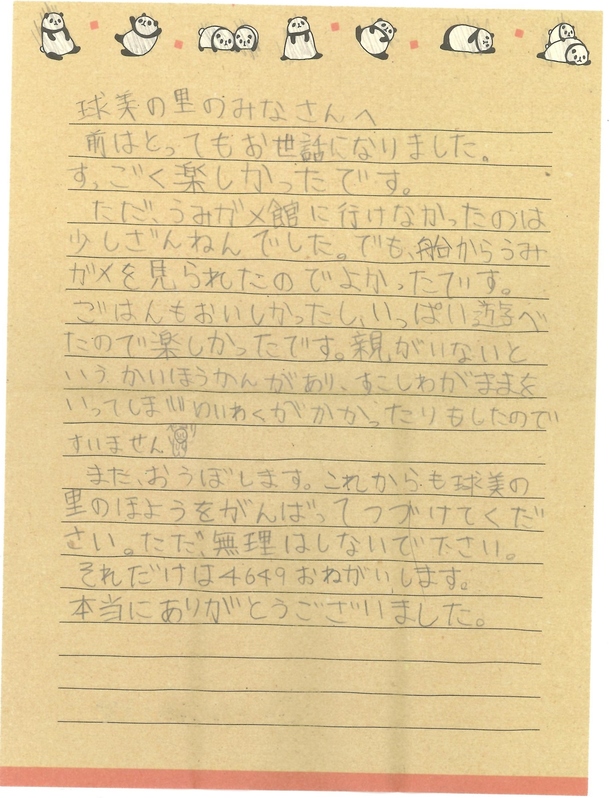 球美の里のみなさんへ
前はとってもお世話になりました。
すっごく楽しかったです。
ただ、うみガメ館に行けなかったのは
少しざんねんでした。でも、船からうみ
ガメを見られたのでよかったでいす。
ごはんもおいしかったし、いっぱい遊べ
たので楽しかったです。親がいないと
いうかいほうかんがあり、すこしわがままを
いってしまいめいわくがかかったりもしたので
すいません
また、おうぼします。これからも球美の
里のほようをがんばってつづけてくだ
さい。ただ、無理はしないで下さい。
それだけは4649おねがいします。
本当にありがとうございました。